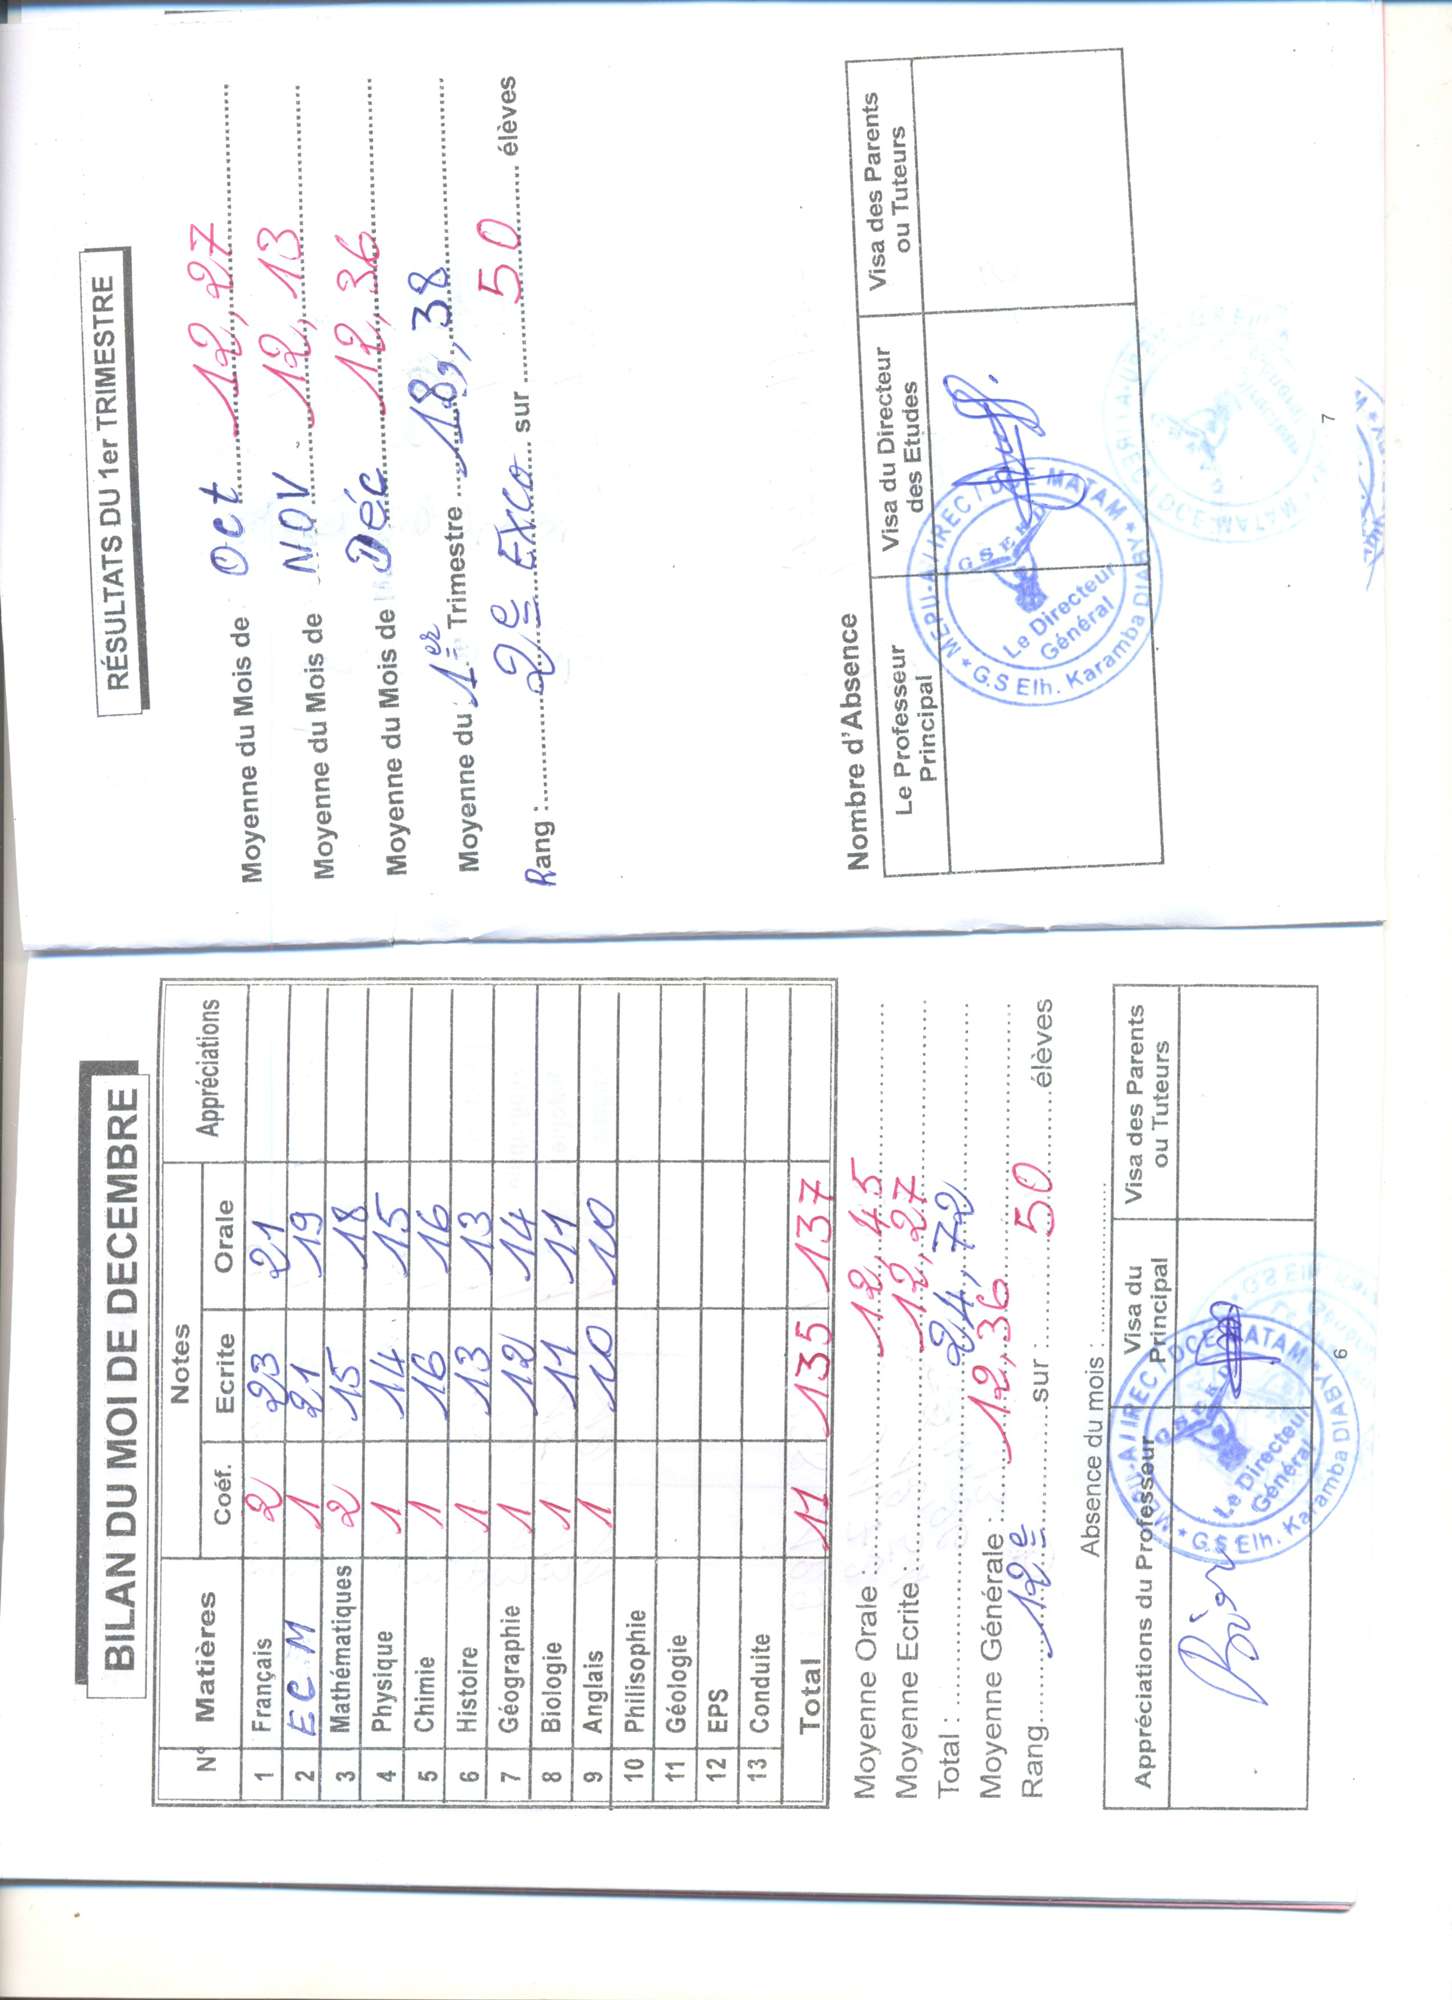 BILAN DU MOI DE DECEMBRE
N° Matières Notes Appréciations
Coéf. Ecrite Orale
1 Français 2 23 21
2 ECM 1 21 19
3 Mathématiques 2 15 18
4 Physique 1 14 15
5 Chimie 1 16 16
6 Histoire 1 13 13
7 Géographie 1 12 14
8 Biologie 1 11 11
9 Anglais 1 10 10
10 Philisophie
11 Géologie
12 EPS
13 Conduite
Total 11 135 137
Moyenne Orale : 12,45
Moyenne Ecrite : 12,27
Total : 24,72
Moyenne Générale : 12,36
Rang 12e sur 50 élèves
Absence du mois :
Appréciations du Professeur Visa du Principal Visa des Parents ou Tuteurs
MEPU-A / IREC / DCE MATAM
GSEKD
Le Directeur Général
G.S Elh. Karamba DIABY
6
RÉSULTATS DU 1er TRIMESTRE
Moyenne du Mois de Oct 12,27
Moyenne du Mois de NOV 12,13
Moyenne du Mois de Déc 12,36
Moyenne du 1er Trimestre 18,38
Rang : 2e Exco sur 50 élèves
Nombre d'Absence
Le Professeur Principal Visa du Directeur des Etudes Visa des Parents ou Tuteurs
MEPU-A / IREC / DCE MATAM
GSEKD
Le Directeur Général
G.S Elh. Karamba DIABY
7